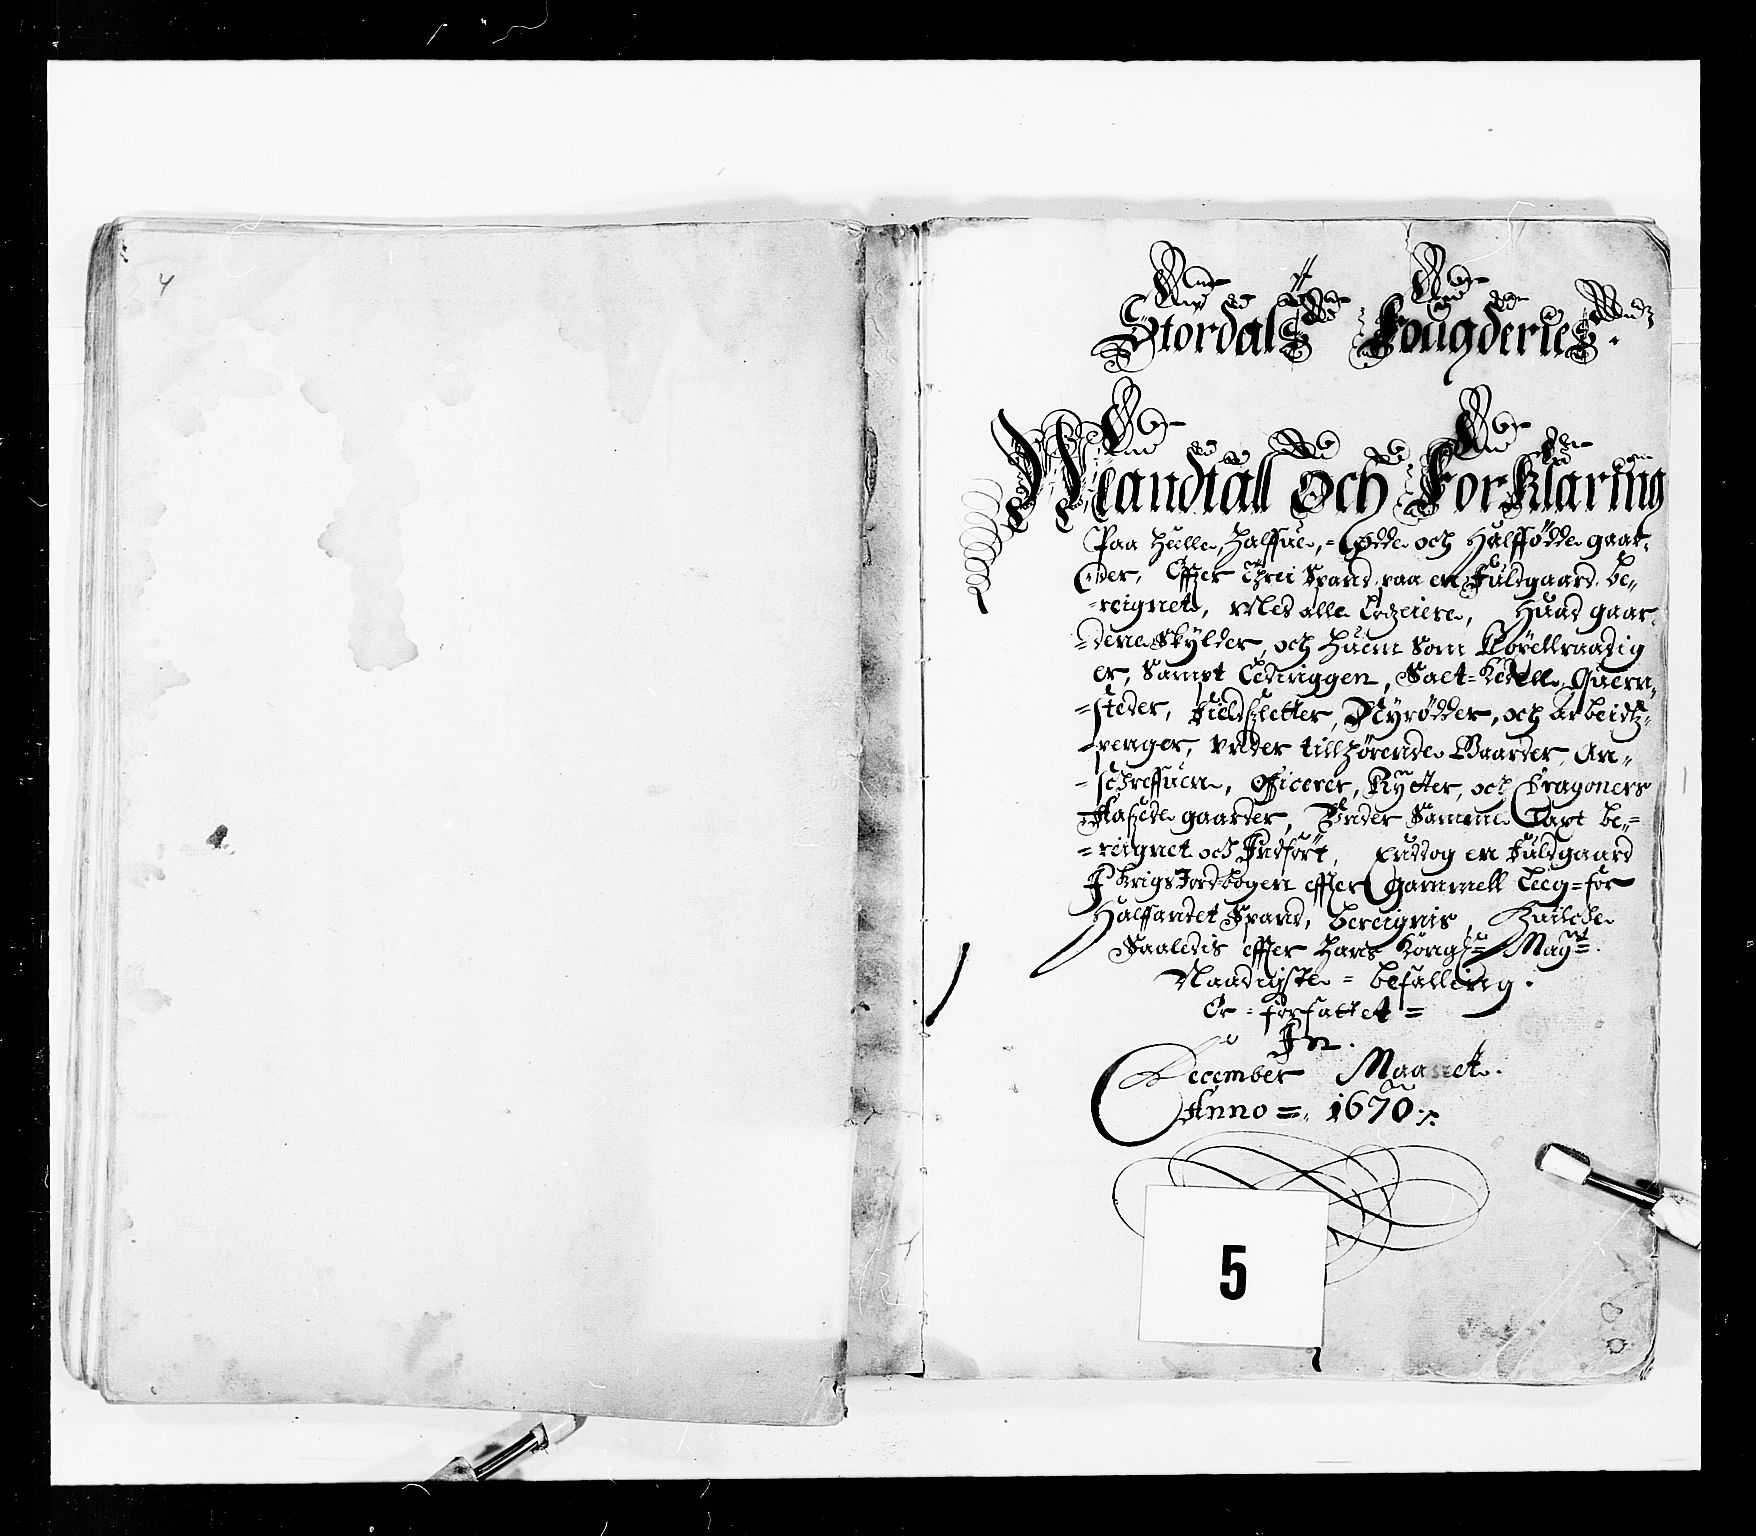 4
Stordals Fougderies.
Mandtall Och Forklaring
Paa Heelle, Halffue, = Ødde och Halffødde gaar-
der, Effter Threi Spand paa en Fuldgaard be-
=reignet, Med alle Lodzeiere, Huad gaar-
=dene Skylder, och Huem Som Bøxellraadig
er, Sampt Ledinggen, Saet=Kedell, Quern-
=steder, Field Sletter, Nyrødder, och Arbeidtz-
=penger, Vnder tillhørende Gaarder, An-
=schreffuen, Officerer, Rytter, och Dragoners
gaarder, Vnder Samme Taxt be-
=reignet och Indført, Enddog en Fuldgaard
I Krigs Jordbogen effter Gammell Leeg=for
Halffandet Spand, bereignis, Huilcke
Saaledis effter Hans Kongl: May:tt
Naadigste = befalling.
Er = forfattet =
In.
December Maanet.
Anno = 1670.
5